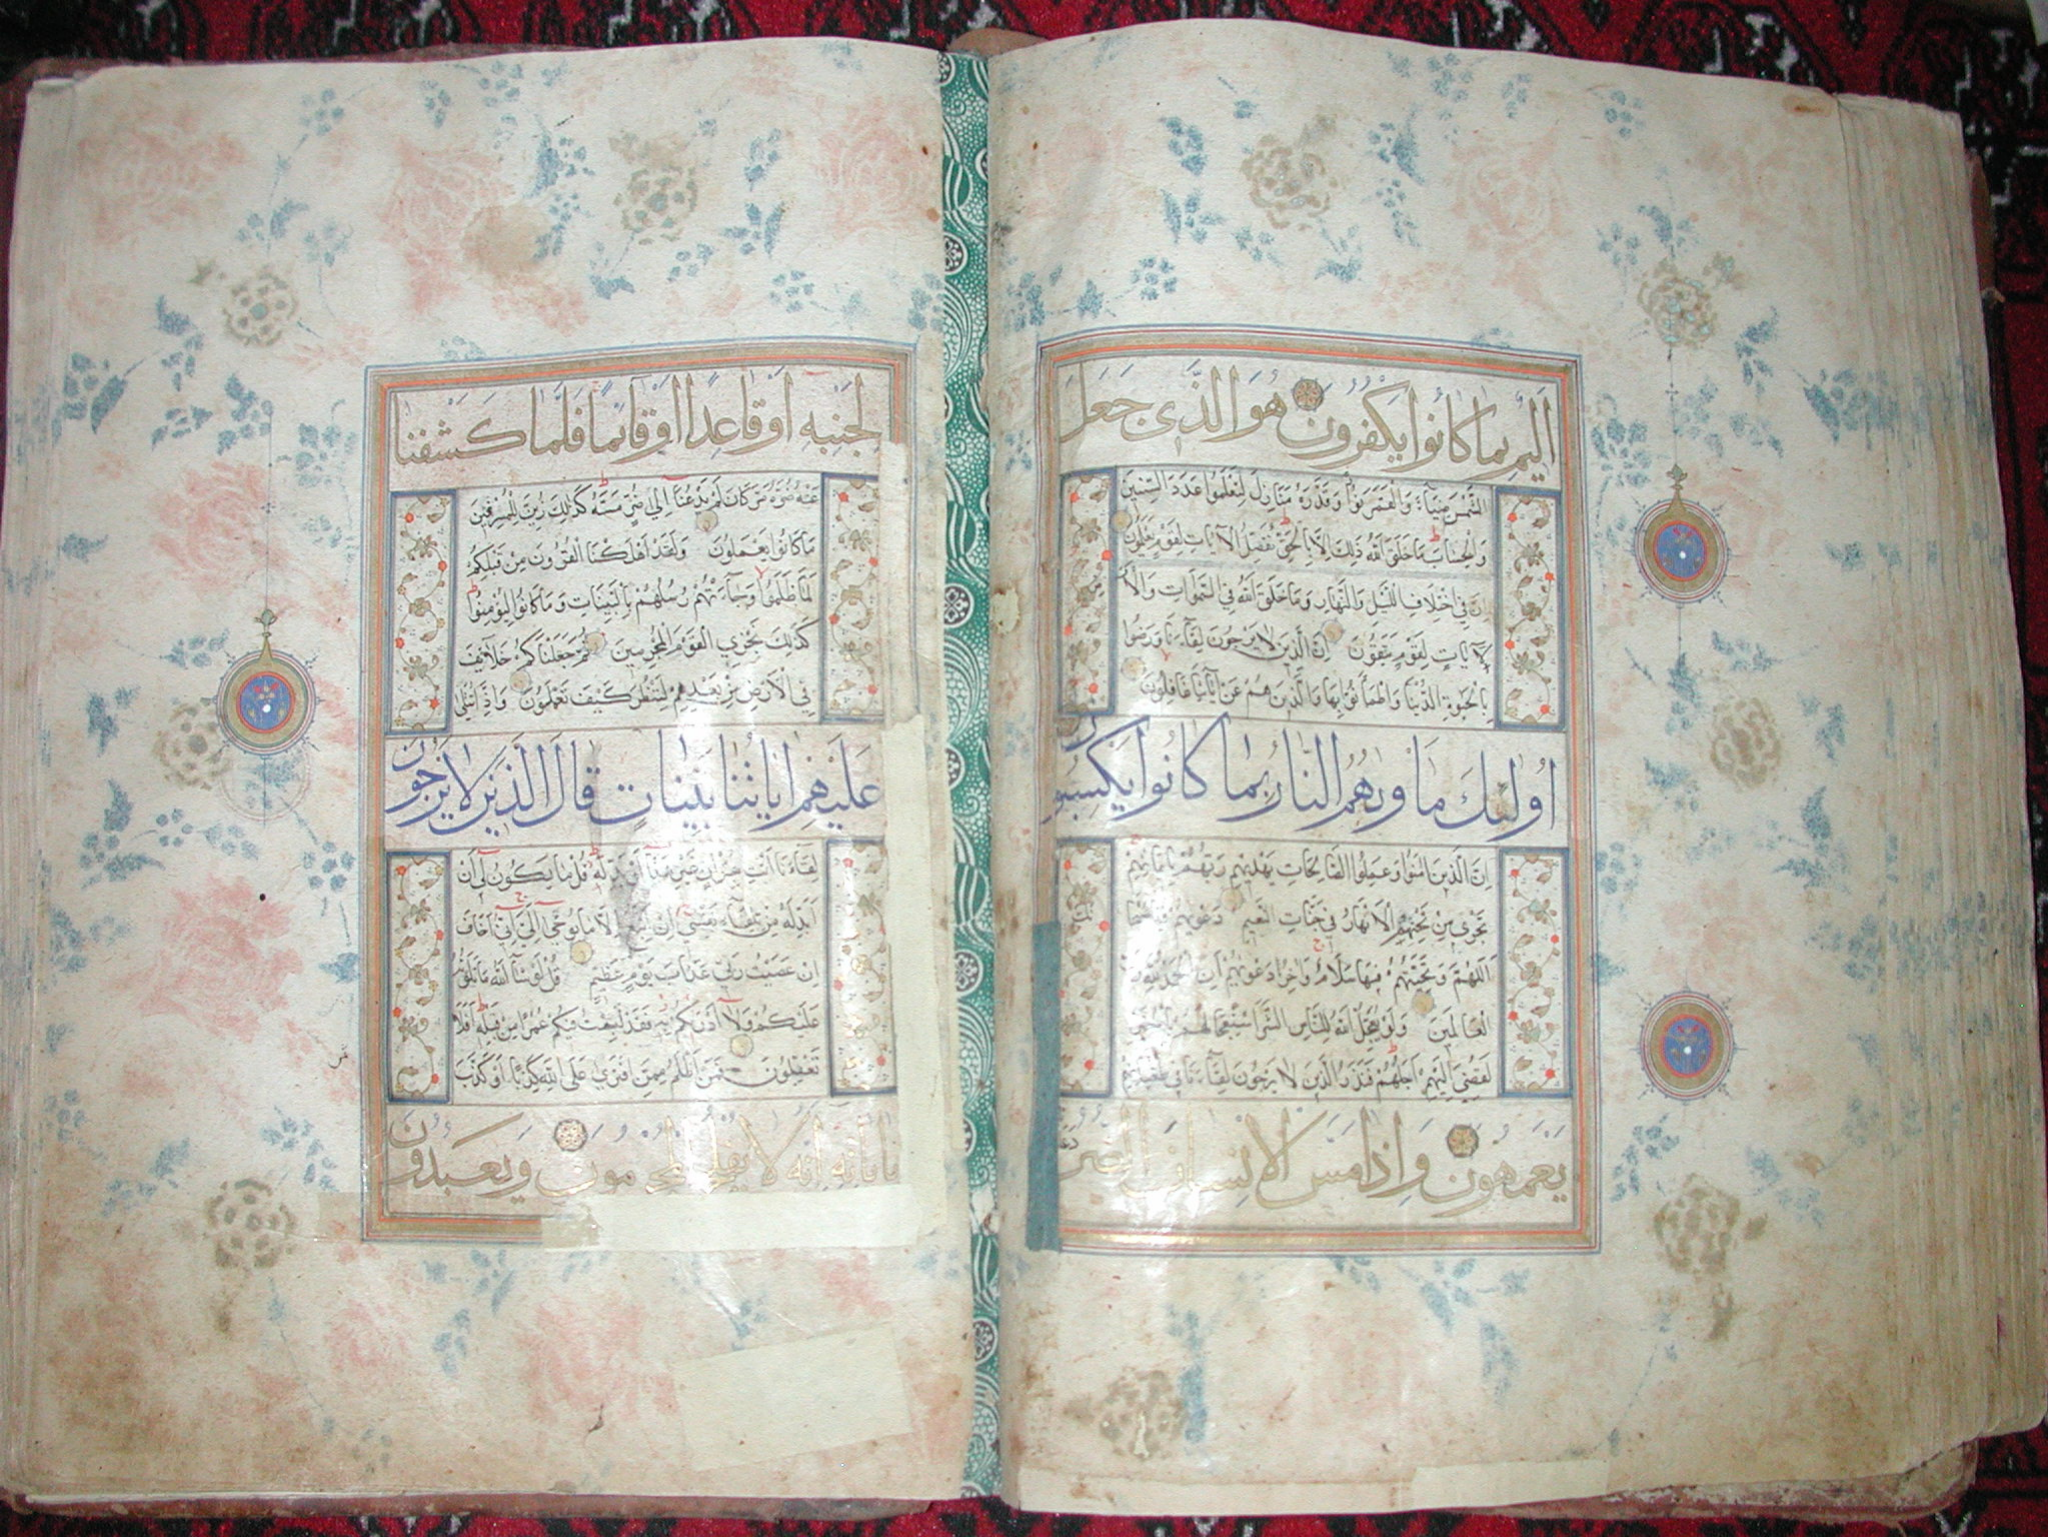 اليم بما كانوا يكفرون هو الذي جعل
الشمس ضياء والقمر نورا وقدره منازل لتعلموا عدد السنين
والحساب ما خلق الله ذلك الا بالحق نفصل الآيات لقوم يعلمون
ان في اختلاف الليل والنهار وما خلق الله في السموات والا
لآيات لقوم يتقون ان الذين لا يرجون لقاءنا ورضوا
بالحيوة الدنيا واطمأنوا بها والذين هم عن آياتنا غافلون
اولئك مأويهم النار بما كانوا يكسبون
ان الذين امنوا وعملوا الصالحات يهديهم ربهم بايمانهم
تجري من تحتهم الانهار في جنات النعيم دعويهم فيها
اللهم وتحيتهم فيها سلام واخر دعويهم ان الحمد لله ر
العالمين ولو يعجل الله للناس الشر استعجالهم بالخير
لقضي اليهم اجلهم فنذر الذين لا يرجون لقاءنا في طغيانهم
يعمهون واذا مس الانسان الضر
لجنبه او قاعدا او قائما فلما كشفنا
عنه ضره مر كان لم يدعنا الى ضر مسه كذلك زين للمسرفين
ما كانوا يعملون ولقد اهلكنا القرون من قبلكم
لما ظلموا وجاءتهم رسلهم بالبينات وما كانوا ليؤمنوا
كذلك نجزي القوم المجرمين ثم جعلناكم خلائف
في الارض من بعدهم لننظر كيف تعملون واذا تتلى
عليهم اياتنا بينات قال الذين لا يرجون
لقاءنا ائت بقران غير هذا او بدله قل ما يكون لي ان
ابدله من تلقاء نفسي ان اتبع الا ما يوحى الي اني اخاف
ان عصيت ربي عذاب يوم عظيم قل لو شاء الله ما تلوته
عليكم ولا ادريكم به فقد لبثت فيكم عمرا من قبله افلا
تعقلون فمن اظلم ممن افترى على الله كذبا او كذب
باياته انه لا يفلح المجرمون ويعبدون